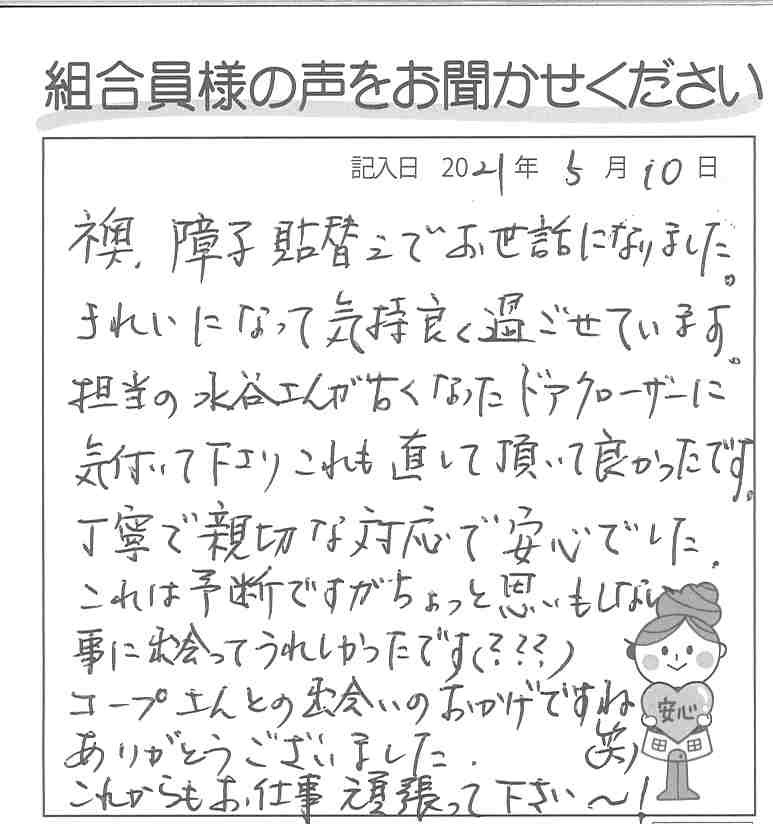 組合員様の声をお聞かせください
記入日 2021年 5月 10日
襖、障子貼替えでお世話になりました。
きれいになって気持良く過ごせています。
担当の水谷さんが古くなったドアクローザーに
気付いて下さりこれも直して頂いて良かったです。
丁寧で親切な対応で安心でした.
これは予断ですがちょっと思いもしない
事に出会ってうれしかったです(???)
コープさんとの出会いのおかげですね
安心
ありがとうございました. (笑)
これからもお仕事頑張って下さい〜!